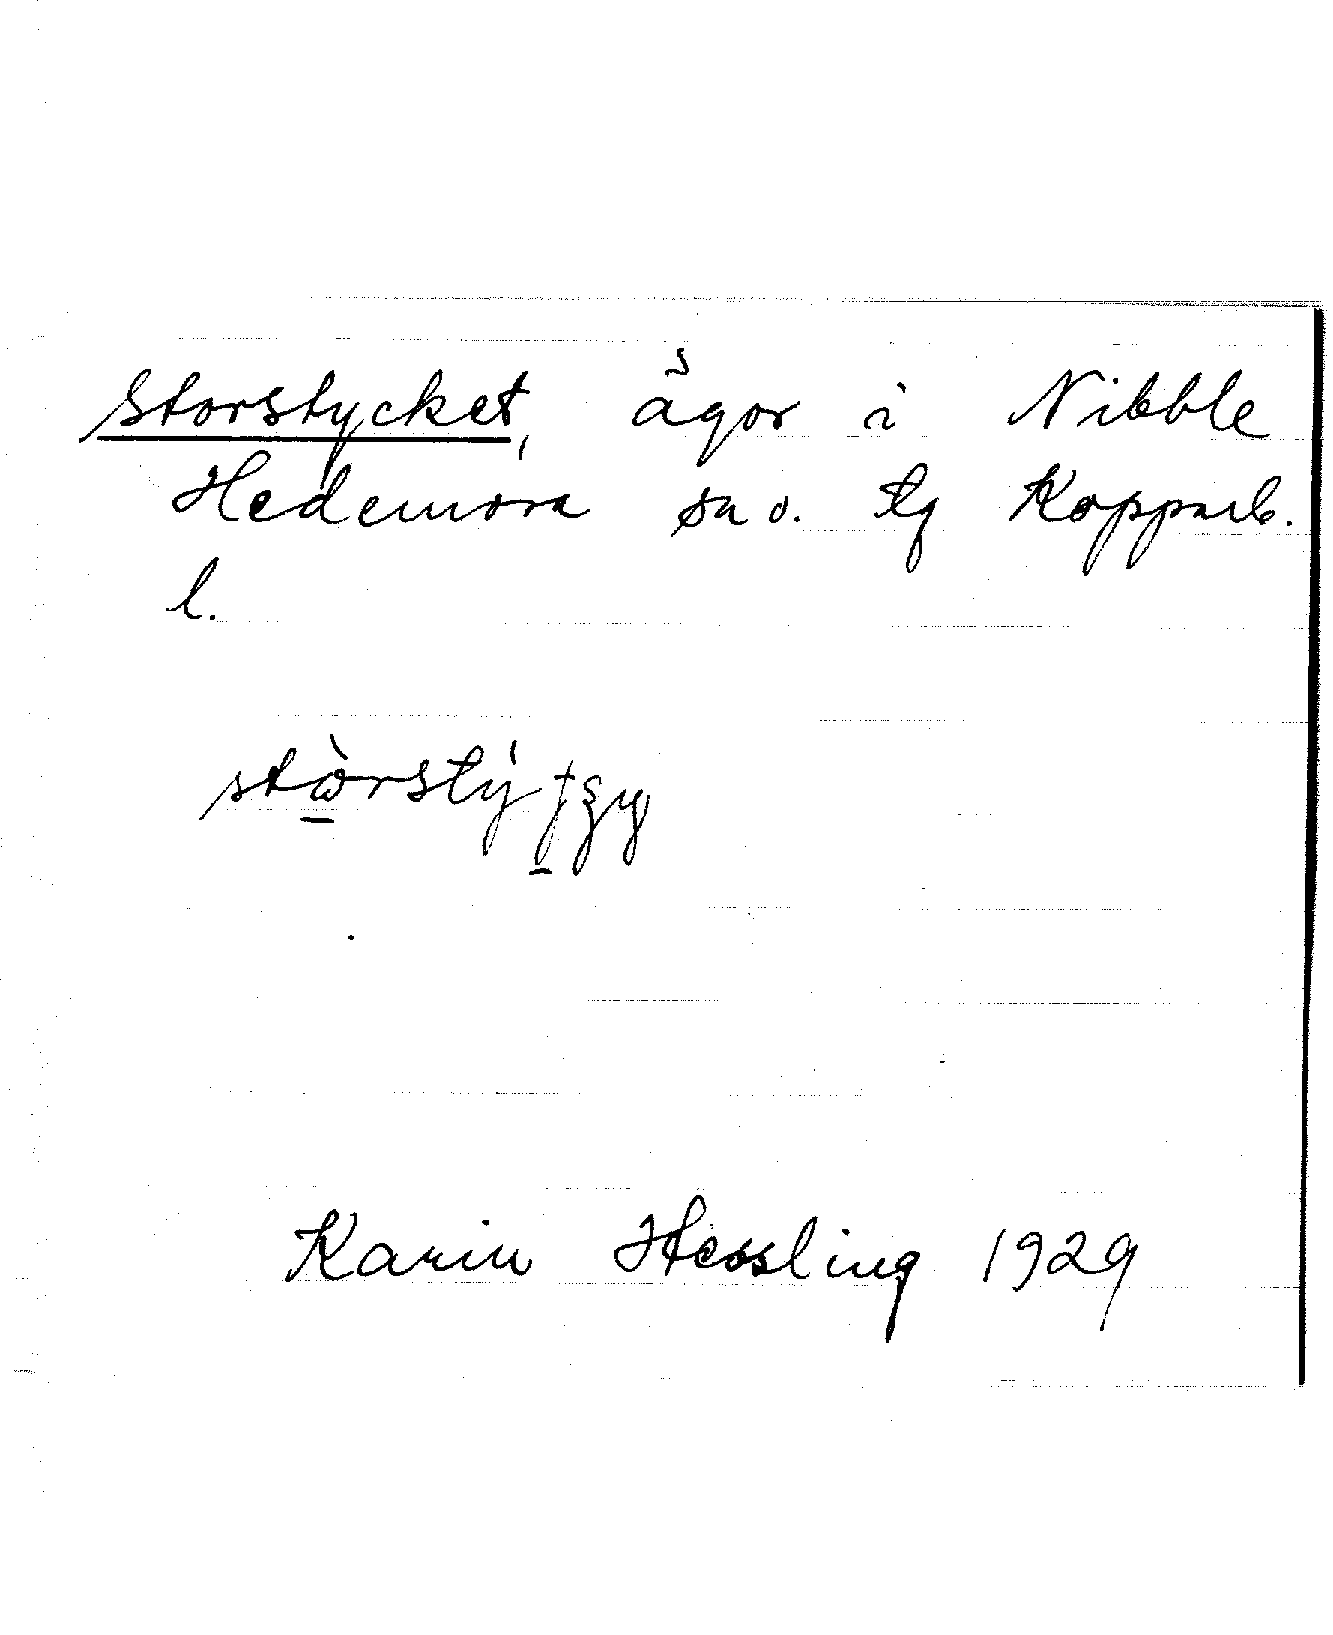 Storstycket, ågor i Nibble
Hedemora sn o. tg Kopparb.
l.
Karin Hessling 1929